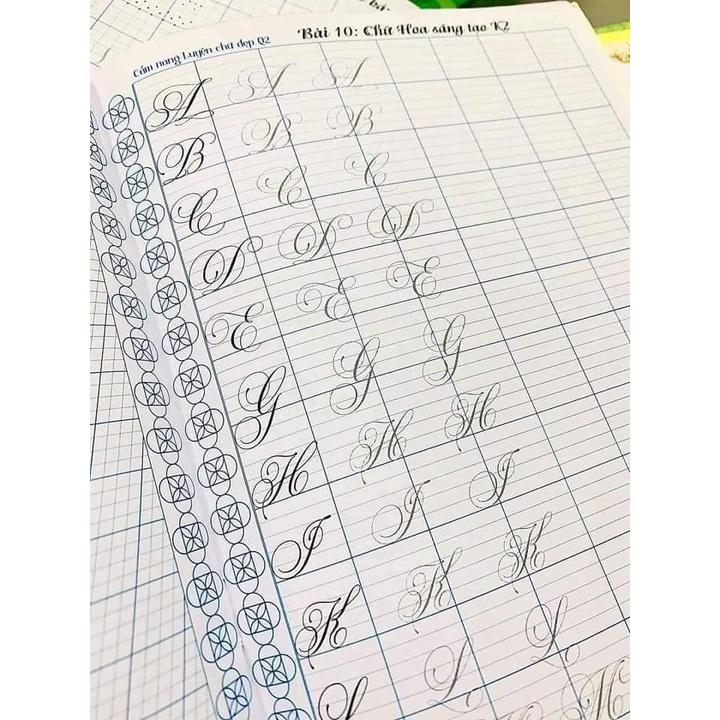 Cẩm nang Luyện chữ đẹp Q2
Bài 10: Chữ Hoa sáng tạo K2
A A A
B B B
C C C
D D D
E E E
G G G
H H H
I I I
K K K
L L L
M